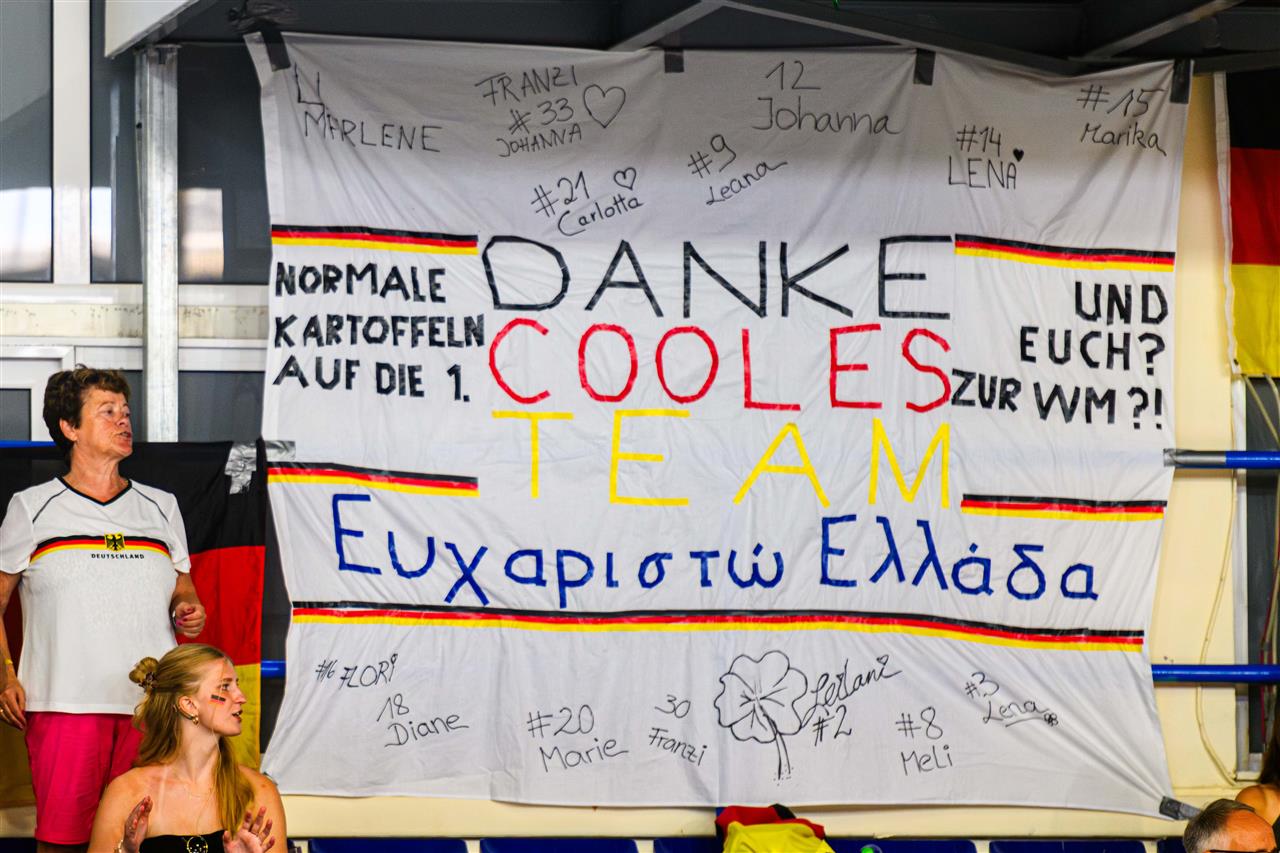 MARLENE
FRANZI
#33
JOHANNA
12
Johanna
#15
Marika
#14
LENA
#9
Leana
#21
Carlotta
NORMALE
KARTOFFELN
AUF DIE 1.
DANKE
COOLES
TEAM
UND
EUCH?
ZUR WM?!
Ευχαριστώ Ελλάδα
DEUTSCHLAND
#16 FLORI
18
Diane
#20
Marie
30
Franzi
#2
#8
Meli
#3
Lena